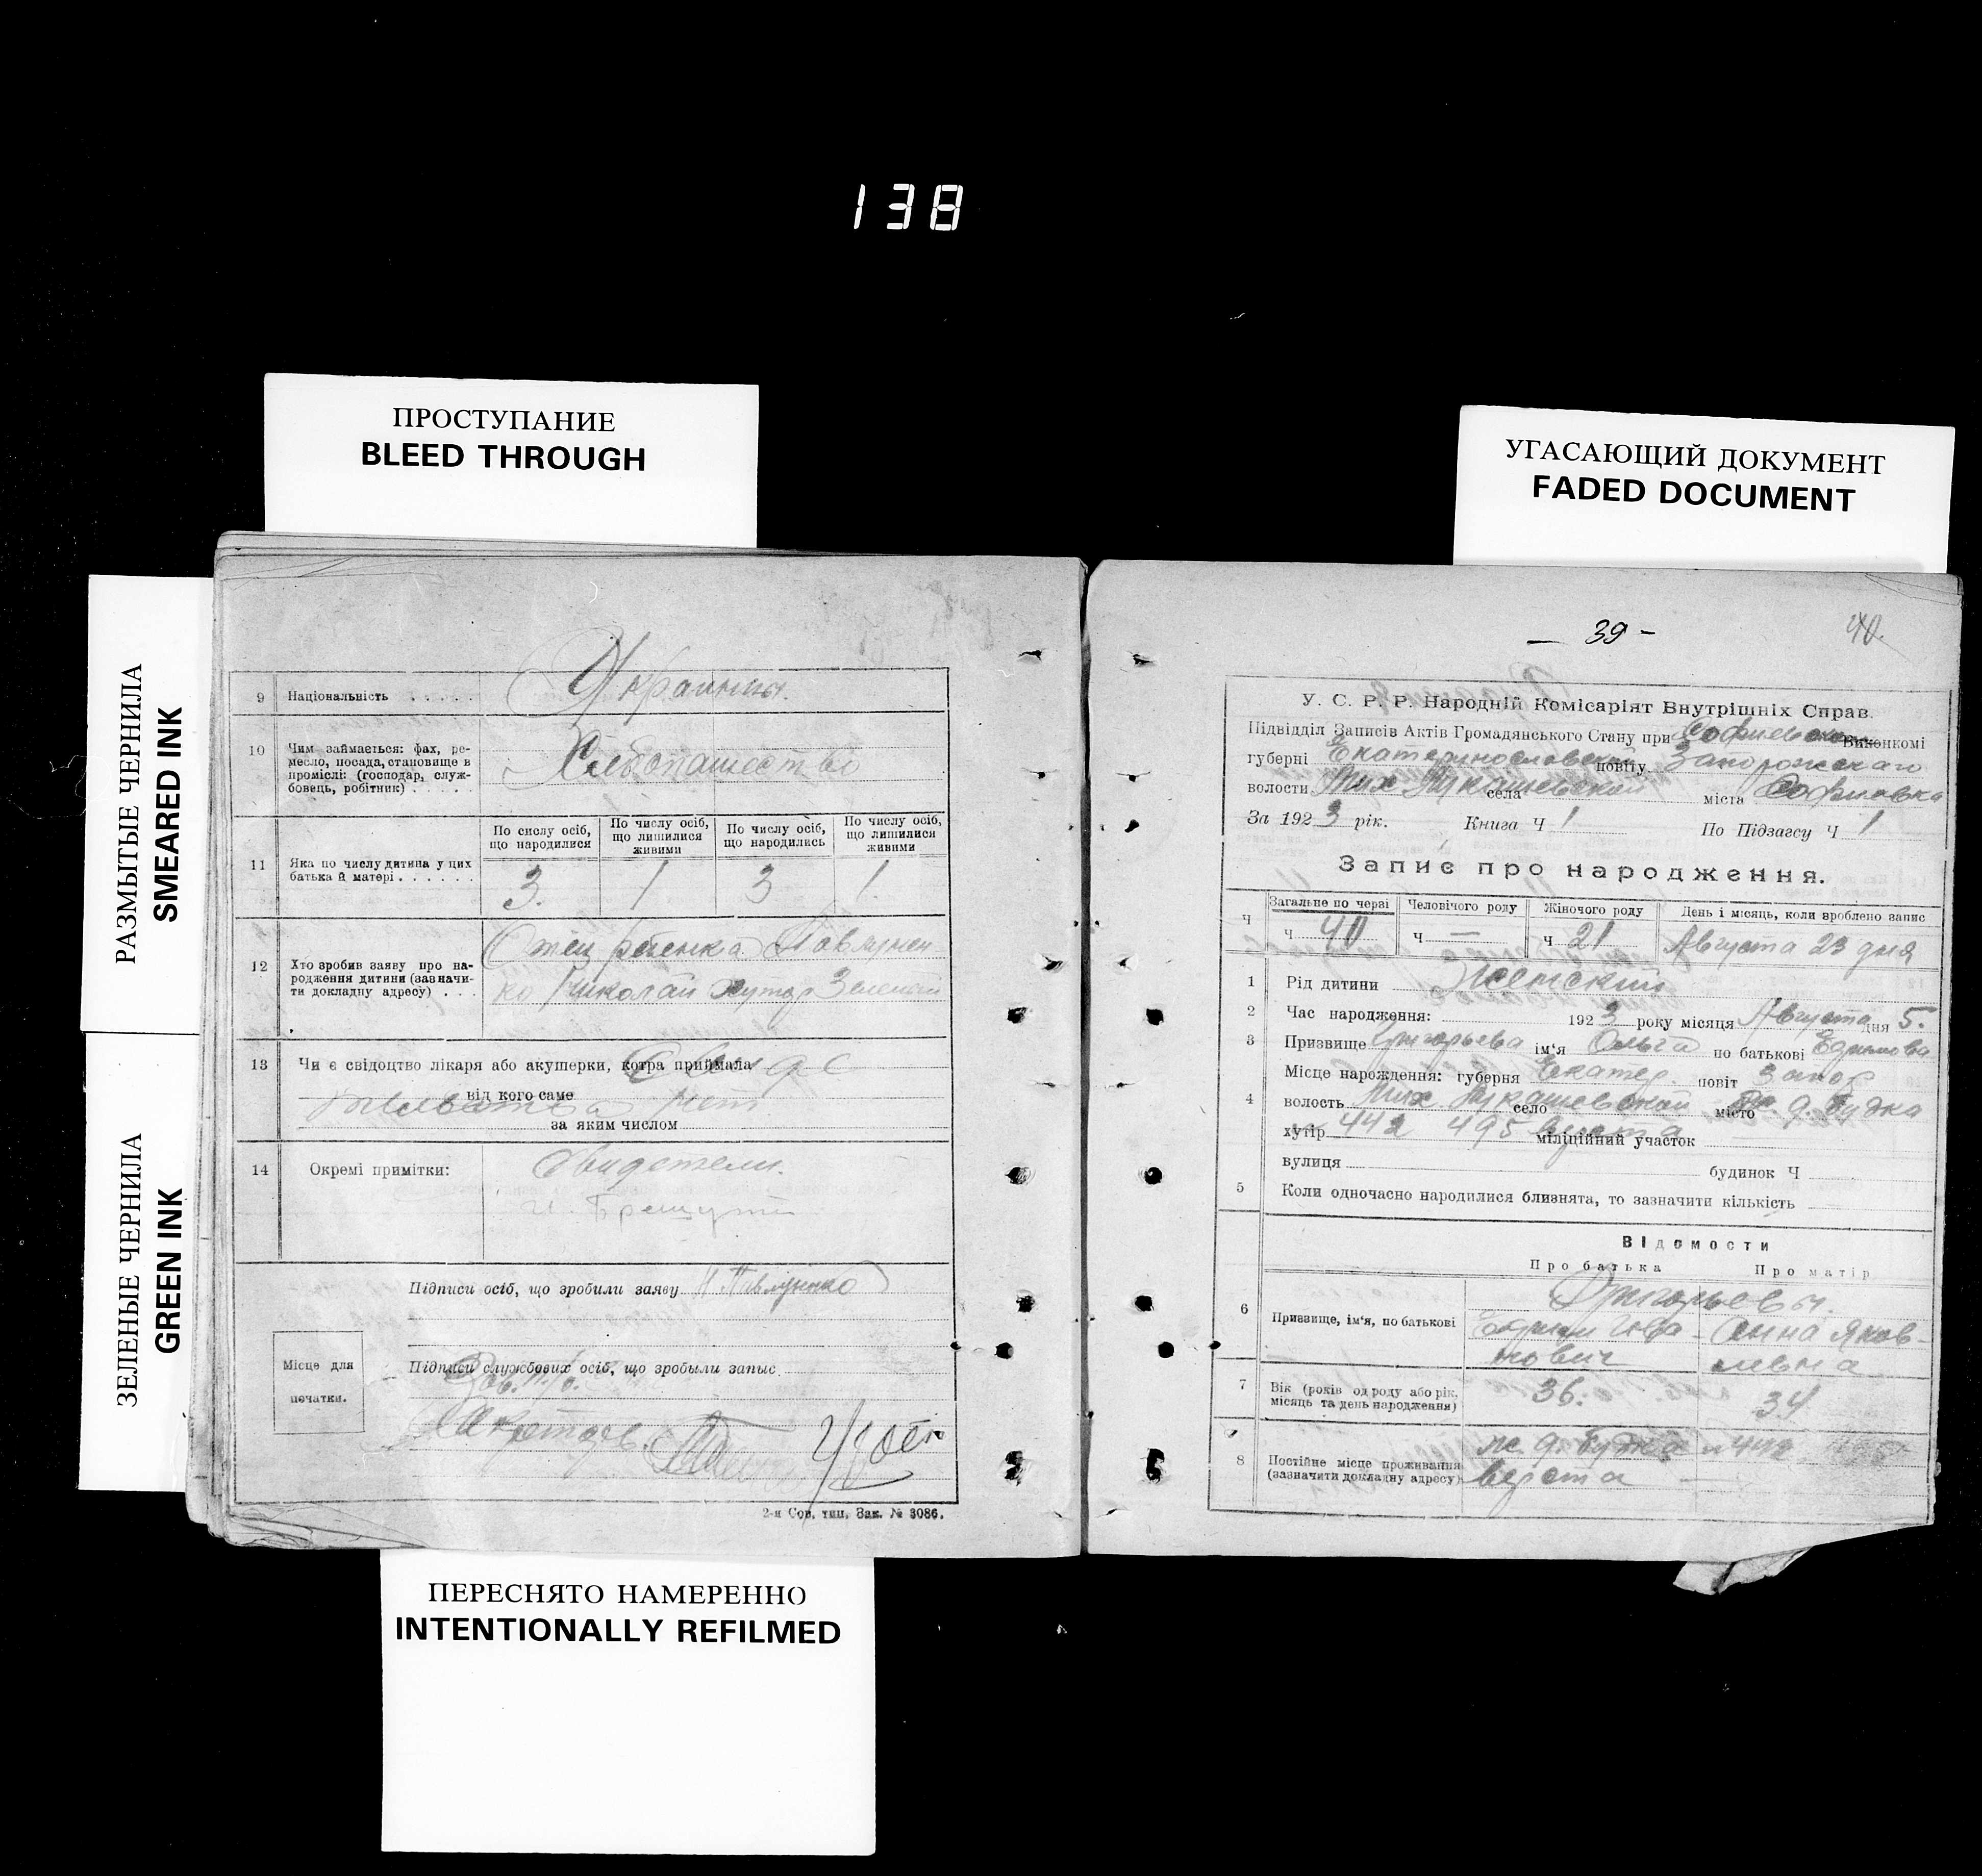 138
ПРОСТУПАНИЕ
BLEED THROUGH
УГАСАЮЩИЙ ДОКУМЕНТ
FADED DOCUMENT
РАЗМЫТЫЕ ЧЕРНИЛА
SMEARED INK
ЗЕЛЕНЫЕ ЧЕРНИЛА
GREEN INK
9 Національність . . . . . Украинцы.
10 Чим займається: фах, ре-
месло, посада, становище в
проміслі: (господар, служ-
бовець, робітник) . . . . .
Хлебопашество
По числу осіб, що народилися
По числу осіб, що лишилися живими
По числу осіб, що народились
По числу осіб, що лишилися живими
11 Яка по числу дитина у цих
батька й матері . . . . . .
3. 1 3 1
12 Хто зробив заяву про на-
родження дитини (зазначи-
ти докладну адресу) . . .
Отец ребенка Павлунен-
ко Николай хутор Зеленый
13 Чи є свідоцтво лікаря або акушерки, котра приймала Свиде
від кого саме
тельства нет
за яким числом
14 Окремі примітки: Свидетели.
Підписи осіб, що зробили заяву Н Павлуненко
Підписи службових осіб, що зробыли запыс
Місце для
печатки.
Секретарь
2-я Сов. тип. Зак. № 3086.
— 39 —
40.
У. С. Р. Р. Народній Комісаріят Внутрішніх Справ.
Підвідділ Записів Актів Громадянського Стану при Софиевском Виконкомі
губерні Екатеринославской повіту Запорожскаго
волости Мих Лукашевской села міста Софиовка
За 1923 рік. Книга Ч 1 По Підзагсу Ч 1
Запис про народження.
Ч Загальне по черзі Человічого роду Жіночого роду День і місяць, коли зроблено запис
ч 40 Ч — ч 21 Августа 23 дня
1 Рід дитини Женский
2 Час народження: 1923 року місяця Августа дня 5.
3 Призвище Григорьева ім'я Ольга по батькові Ефимова
4 Місце нарождення: губерня Екатер. повіт Запор
волость Мих Лукашевской село місто ж. д. будка
хутір 442 495 верста міліційний участок
вулиця будинок Ч
5 Коли одночасно народилися близнята, то зазначити кількість
Відомости
Про батька Про матір
6 Призвище, ім'я, по батькові
Григорьевы.
Ефим Ива- Анна Яков-
нович левна
7 Вік (років од роду або рік,
місяць та день народження)
36. 34
8 Постійне місце проживання
(зазначити докладну адресу)
ж. д. будка 442
верста
ПЕРЕСНЯТО НАМЕРЕННО
INTENTIONALLY REFILMED